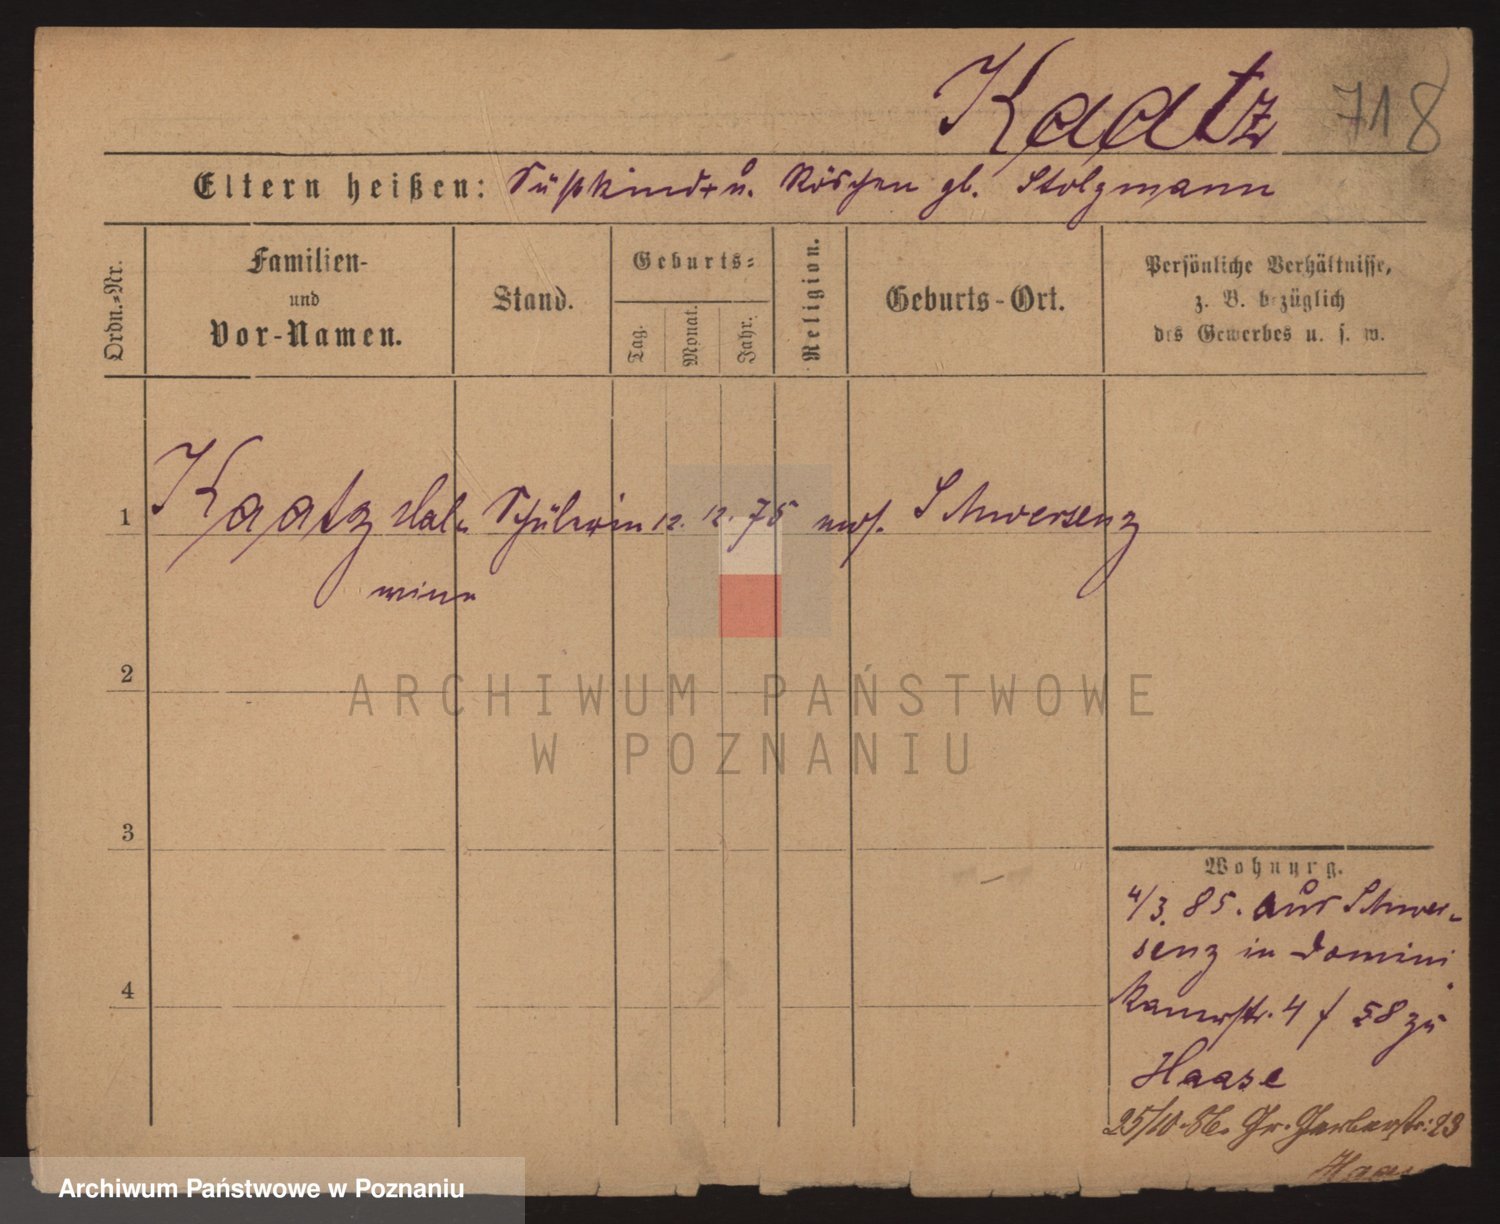 Kaatz 718
Eltern heißen: Süßkind u. Röschen gb. Stolzmann
Ordn.-Nr.
Familien-
und
Vor-Namen.
Stand.
Geburts-
Tag.
Monat.
Jahr.
Religion.
Geburts-Ort.
Persönliche Verhältnisse,
z. B. bezüglich
des Gewerbes u. s. w.
1 Kaatz Schülerin 12. 12. 75 mos. Schwersenz
2
ARCHIWUM PAŃSTWOWE
W POZNANIU
3
Wohnung.
4/3. 85. aus Schwer-
senz in Domini
kanerstr. 4 58 zu
4
Haase
25/10. 86. Gr. Gerberstr. 23
Haase
Archiwum Państwowe w Poznaniu